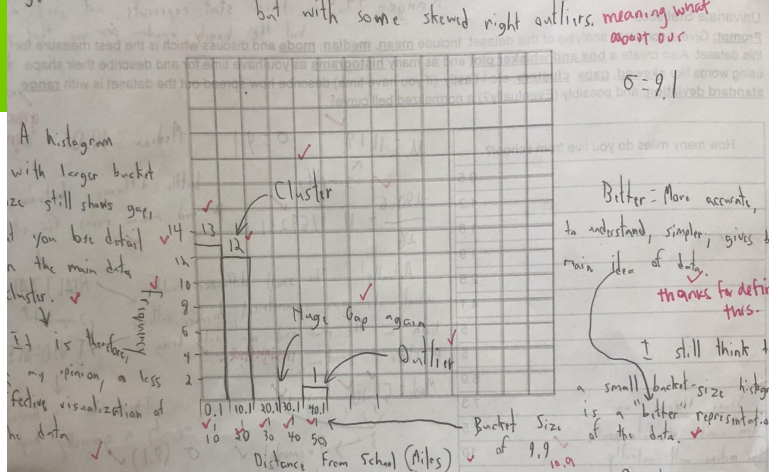 but with some skewed right outliers. meaning what
about our
σ = 9.1
A histogram
with larger bucket
ze still shows gap,
you lose detail
the main data
cluster.
It is therefore,
my opinion, a less
fective visualization of
he data
14
12
10
8
6
4
2
13
12
1
Frequency
Cluster
Huge Gap again
Outlier
0.1 10.1 20.1 30.1 40.1
10 20 30 40 50
Distance From School (Miles)
Bucket Size
of 9.9
10.9
Better = More accurate,
to understand, simpler, gives
main idea of data.
thanks for defi
this.
I still think
a small bucket-size histog
is a "better" representatio
of the data.